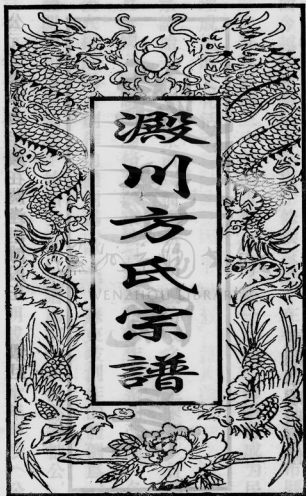 澱川方氏宗譜